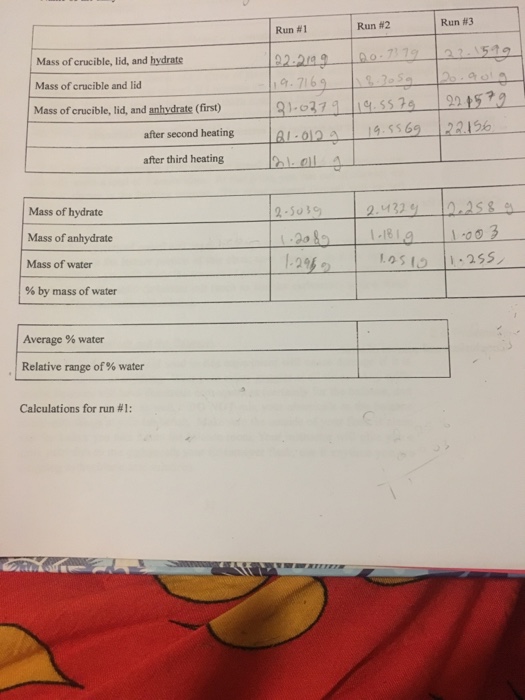 Run #1 Run #2 Run #3
Mass of crucible, lid, and hydrate 22.219g 20.737g
Mass of crucible and lid 19.716g 18.305g 20.901g
Mass of crucible, lid, and anhydrate (first) 21.037g 19.557g
after second heating 21.012g 19.556g 22.156
after third heating 21.011 g
Mass of hydrate 2.503g 2.432g 2.258 g
Mass of anhydrate 1.208g 1.181g 1.003
Mass of water 1.251g 1.255
% by mass of water
Average % water
Relative range of % water
Calculations for run #1: